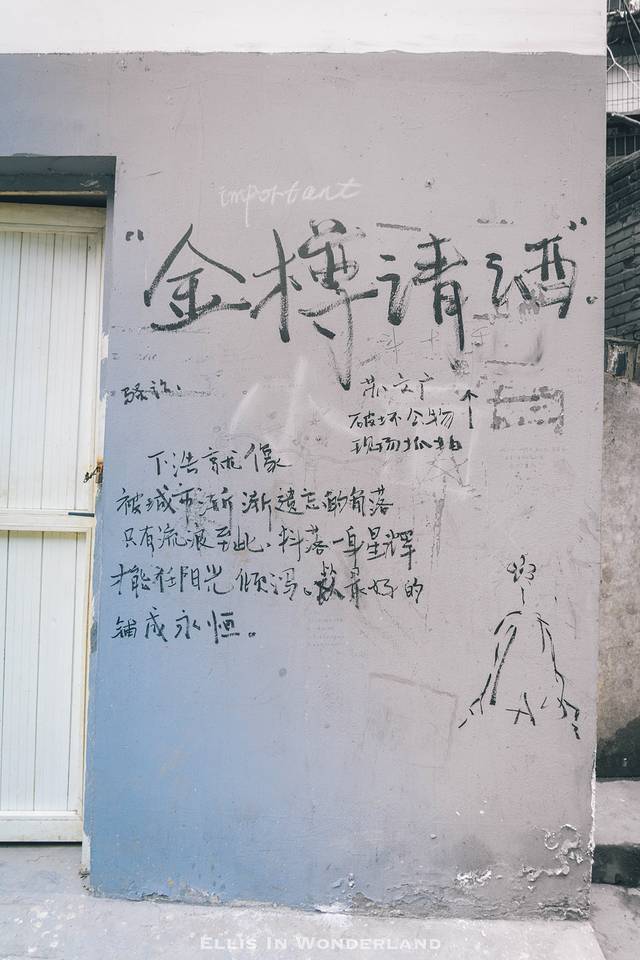 important
“金樽请酒”
骚话.
苏文广
破坏公物
现场抓拍
下浩就像
被城市渐渐遗忘的角落
只有流浪至此、抖落一身星辉
才能在阳光倾泻。最好的
铺成永恒。
ELLIS IN WONDERLAND